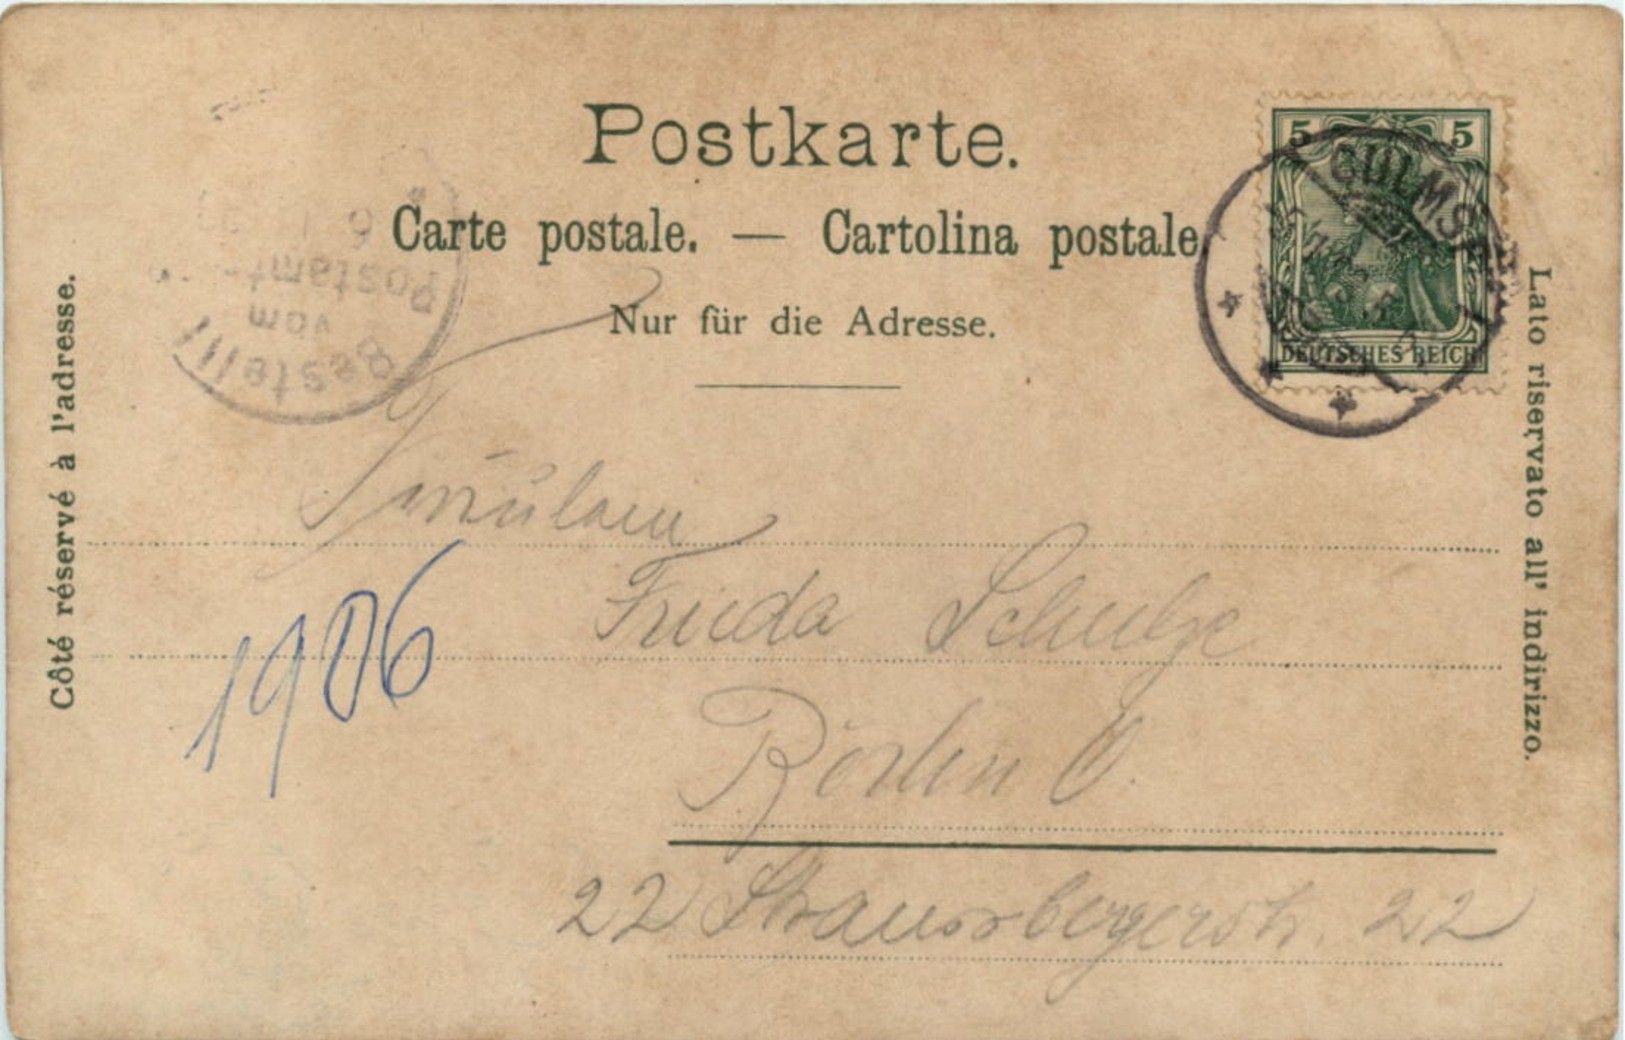 Postkarte.
Carte postale. — Cartolina postale
Nur für die Adresse.
Côté réservé à l'adresse.
Lato riservato all' indirizzo.
5 5
DEUTSCHES REICH
CULMSEE
Bestellt
vom
Postamt
Fräulein
Frieda Schulze
1906
Berlin O.
22 Straussbergerstr. 22